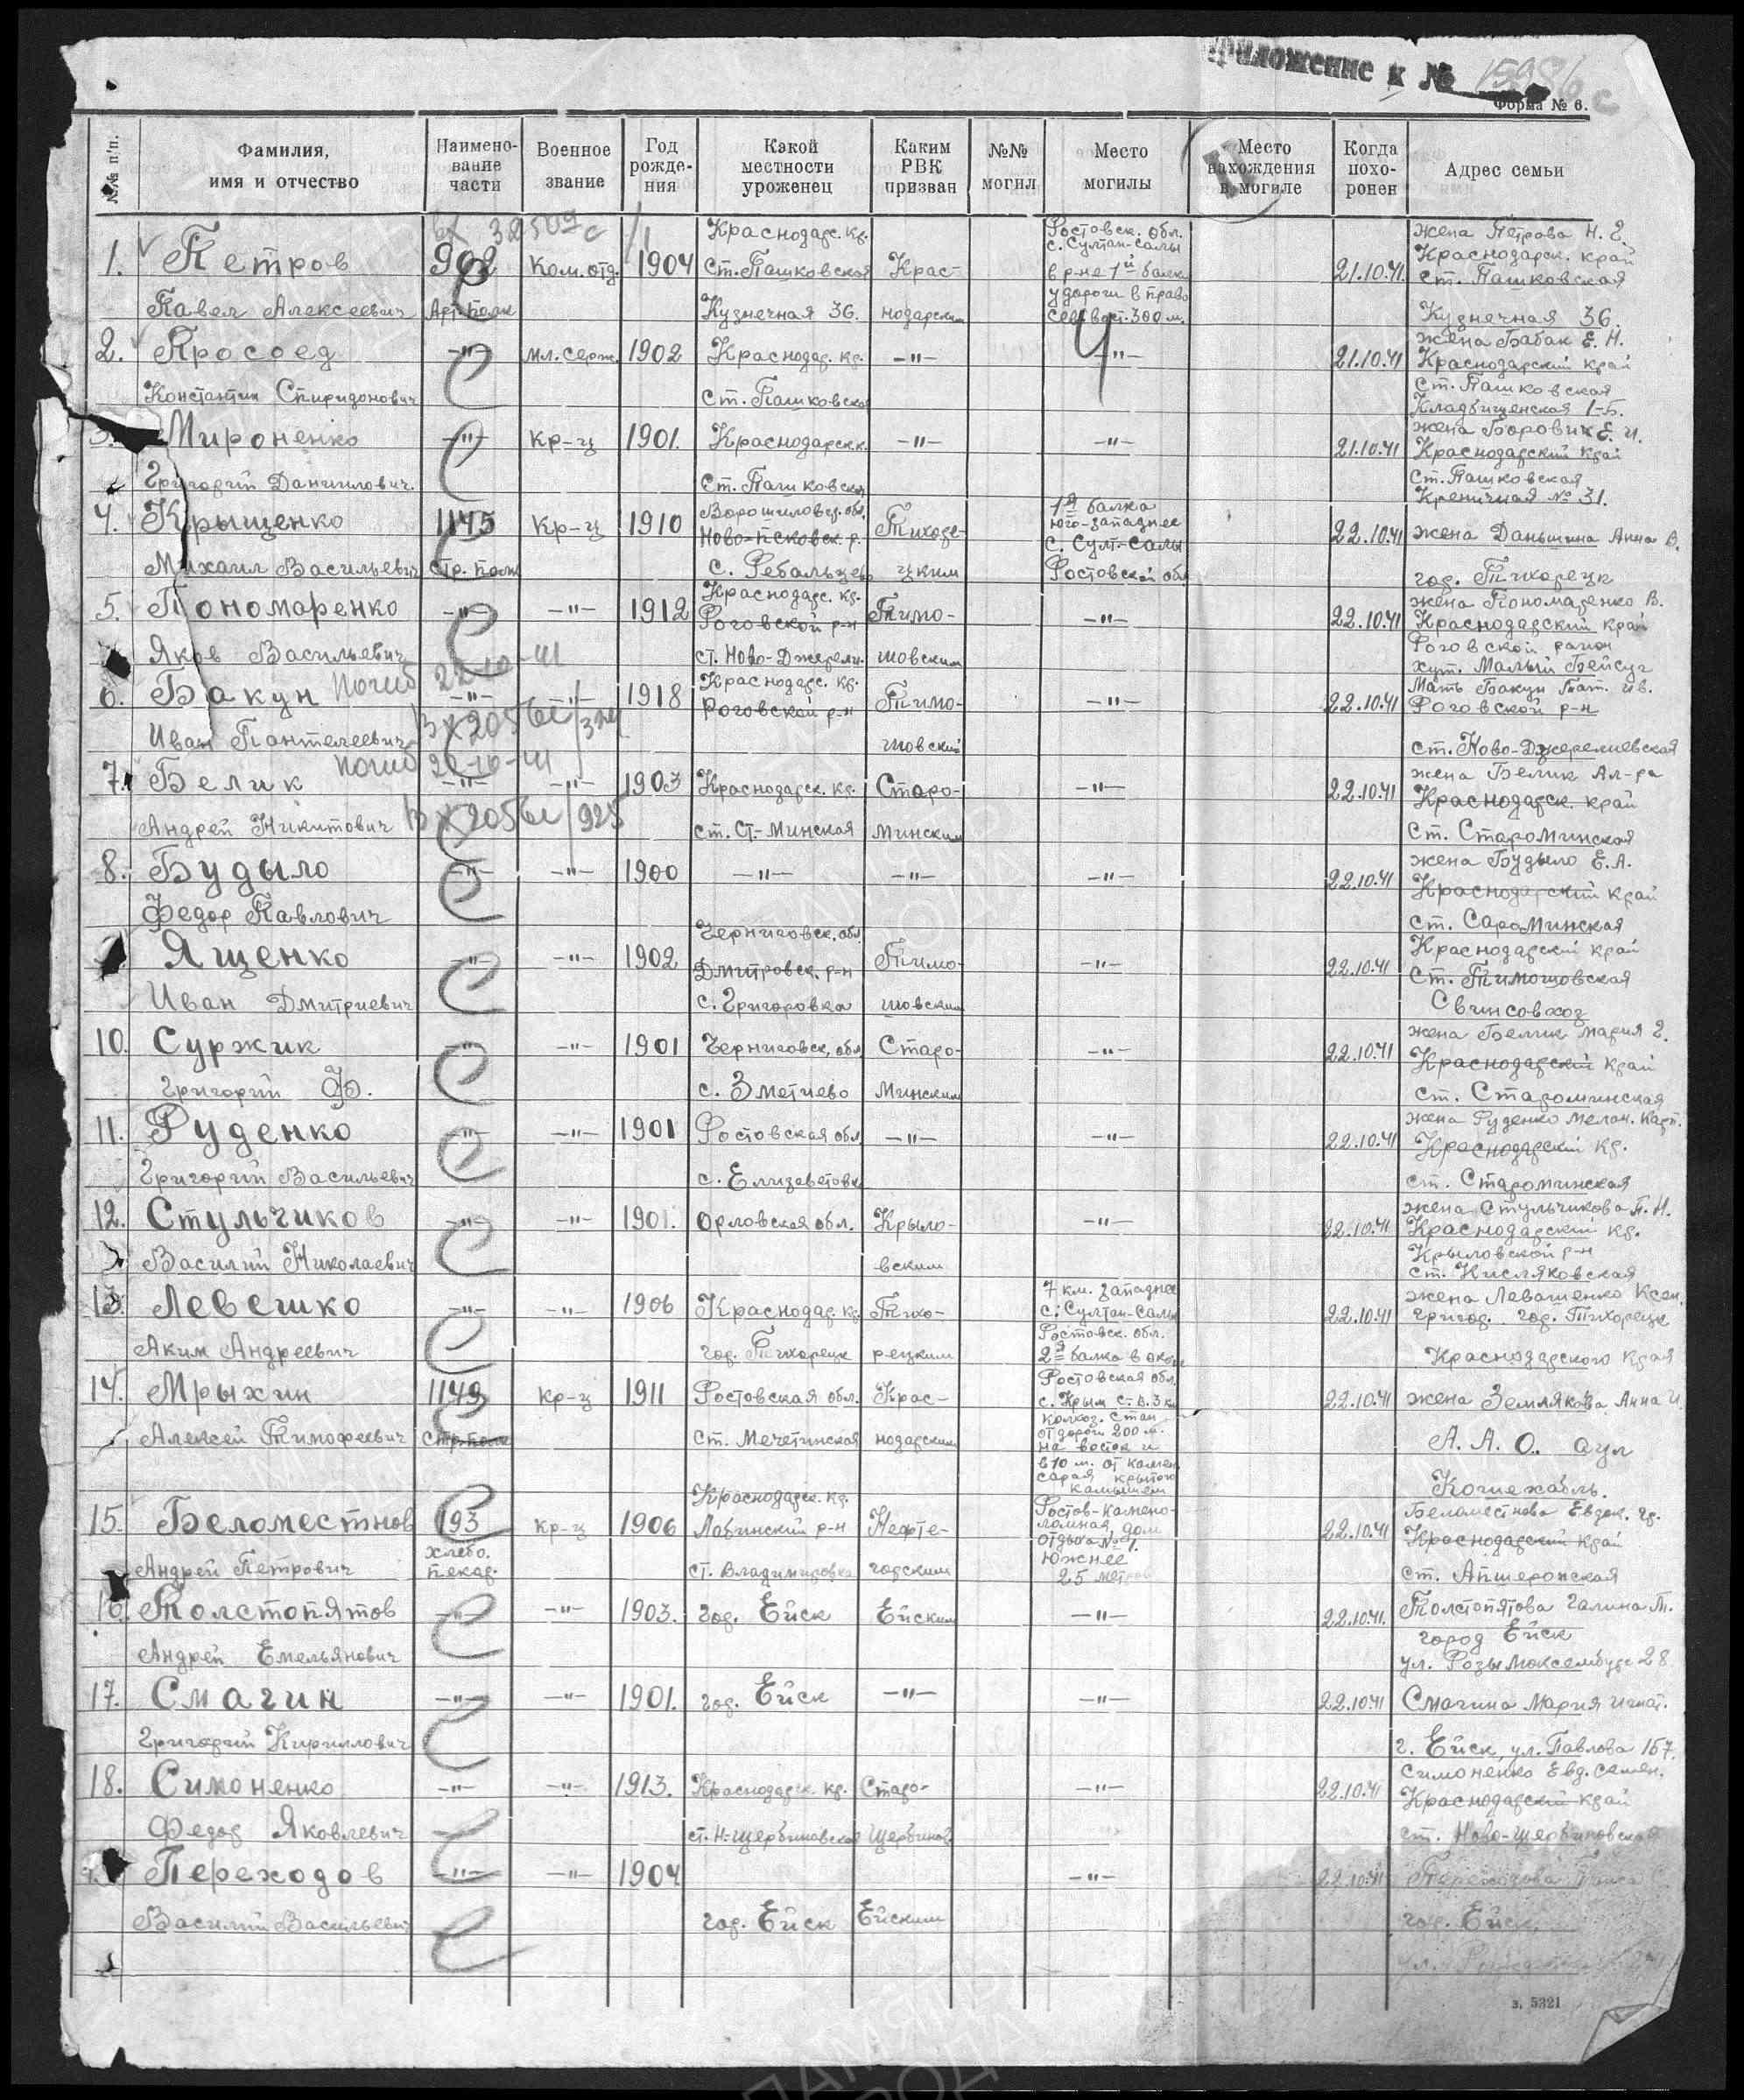 Приложение к № 15986 с
Форма № 6.
№№ п/п.
Фамилия, имя и отчество
Наименование части
Военное звание
Год рождения
Какой местности уроженец
Каким РВК призван
№№ могил
Место могилы
Место нахождения в могиле
Когда похоронен
Адрес семьи
вх 32509с
1. Петров 902 Ком.отд. 1904 Краснодарс. кр. ст. Пашковской Крас- Ростовск. обл. с. Султан-Салы в р-не 1й балки 21.10.41. жена Петрова Н. Г. Краснодарск. край ст. Пашковская
Павел Алексеевич Арт. полк Кузнечная 36. нодарским у дороги в право сев. вост. 300 м. Кузнечная 36.
2. Просоед –"– мл. серж. 1902 Краснодар. кр. –"– 4 –"– 21.10.41 жена Бабак Е. Н. Краснодарский край
Константин Спиридонович ст. Пашковской ст. Пашковская Кладбищенская 1-Б.
3. Мироненко –"– Кр-ц 1901. Краснодарск к. –"– –"– 21.10.41 жена Боровик Е. И. Краснодарский край
Григорий Даниилович. ст. Пашковской ст. Пашковская Креничная № 31.
4. Крыщенко 1145 Кр-ц 1910 Ворошиловгр. обл. Ново-Псковск. р. Тихоре- 1я балка юго-западнее с. Султ.-Салы 22.10.41 жена Даньшина Анна В.
Михаил Васильевич Стр. полк с. Ребальцево цким Ростовской обл гор. Тихорецк
5. Пономаренко –"– –"– 1912 Краснодарс. кр. Роговской р-н Тимо- –"– 22.10.41 жена Пономаренко В. Краснодарский край
Яков Васильевич ст. Ново-Джерели. шовским Роговской район хут. Малый Бейсуг
погиб 22-10-41
6. Бакун –"– –"– 1918 Краснодарс. кр. Роговской р-н Тимо- –"– 22.10.41 Мать Бакун Пат. Ив. Роговской р-н
Вх 2056с/324
Иван Пантелеевич шовский ст. Ново-Джерелиевская
погиб 22-10-41
7. Белик –"– –"– 1903 Краснодарск. кр. Старо- –"– 22.10.41 жена Белик Ал-ра Краснодарск. край
Андрей Никитович Вх 2056с/925 ст. Ст.-Минская минским ст. Староминская
8. Будыло –"– –"– 1900 –"– –"– –"– 22.10.41 жена Будыло Е. А. Краснодарский край
Федор Павлович ст. Сароминская
Ященко –"– –"– 1902 Черниговск. обл. Дмитровск. р-н Тимо- –"– 22.10.41 Краснодарский край ст. Тимошовская
Иван Дмитриевич с. Григоровка шовским Свинсовхоз
10. Суржик –"– –"– 1901 Черниговск. обл Старо- –"– 22.10.41 жена Белик Мария Г. Краснодарский край
Григорий Ф. с. Зметнево минским ст. Староминская
11. Руденко –"– –"– 1901 Ростовская обл. –"– –"– 22.10.41 жена Руденко Мелан. Карп. Краснодарский кр.
Григорий Васильевич с. Елизаветовк ст. Староминская
12. Стульчиков –"– –"– 1901. Орловская обл. Крыло- –"– 22.10.41 жена Стульчикова П. Н. Краснодарский кр.
Василий Николаевич вским Крыловской р-н ст. Кисляковская
13. Левешко –"– –"– 1906 Краснодар. кр. Тихо- 7 км. западнее с. Султан-Салы 22.10.41 жена Левашенко Ксен. Григор. гор. Тихорецк
Аким Андреевич гор. Тихорецк рецким Ростовск. обл. 2я балка в окопе Краснодарского края
14. Мрыхин 1149 Кр-ц 1911 Ростовская обл. Крас- Ростовская обл. с. Крым С.-В. 3 км 22.10.41 жена Землякова Анна И.
Алексей Тимофеевич стр. полк ст. Мечетинская нодарским колхоз. стан от дороги 200 м. на восток и в 10 м. от камен. сарая крытого камышем А. А. О. аул Кошехабль.
15. Беломестнов 193 Кр-ц 1906 Краснодарск. кр. Лабинский р-н Нефте- Ростов-Каменоломная, дом отдыха № 1. 22.10.41 Беломестнова Евдок. Гр. Краснодарский край
Андрей Петрович хлебо. пекар. ст. Владимировка горским Южнее 25 метров ст. Апшеронская
16. Толстопятов –"– –"– 1903. гор. Ейск Ейским –"– 22.10.41. Толстопятова Галина Т.
Андрей Емельянович город Ейск ул. Розы Люксембург 28
17. Смагин –"– –"– 1901. гор. Ейск –"– –"– 22.10.41 Смагина Мария Игнат.
Григорий Кириллович г. Ейск, ул. Павлова 157.
18. Симоненко –"– –"– 1913. Краснодарск. кр. Старо- –"– 22.10.41 Симоненко Евд. Семен. Краснодарский край
Федор Яковлевич ст. Н-Щербиновская Щербинов. ст. Ново-Щербиновская
Переходов –"– –"– 1904 –"– 22.10.41 Переходова
Василий Васильевич гор. Ейск Ейским гор. Ейск,
ул.
з. 5321